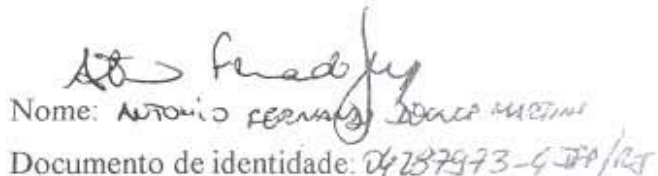 Nome: ANTONIO FERNANDO MARTINS
Documento de identidade: 04287973-4 IFP/RJ